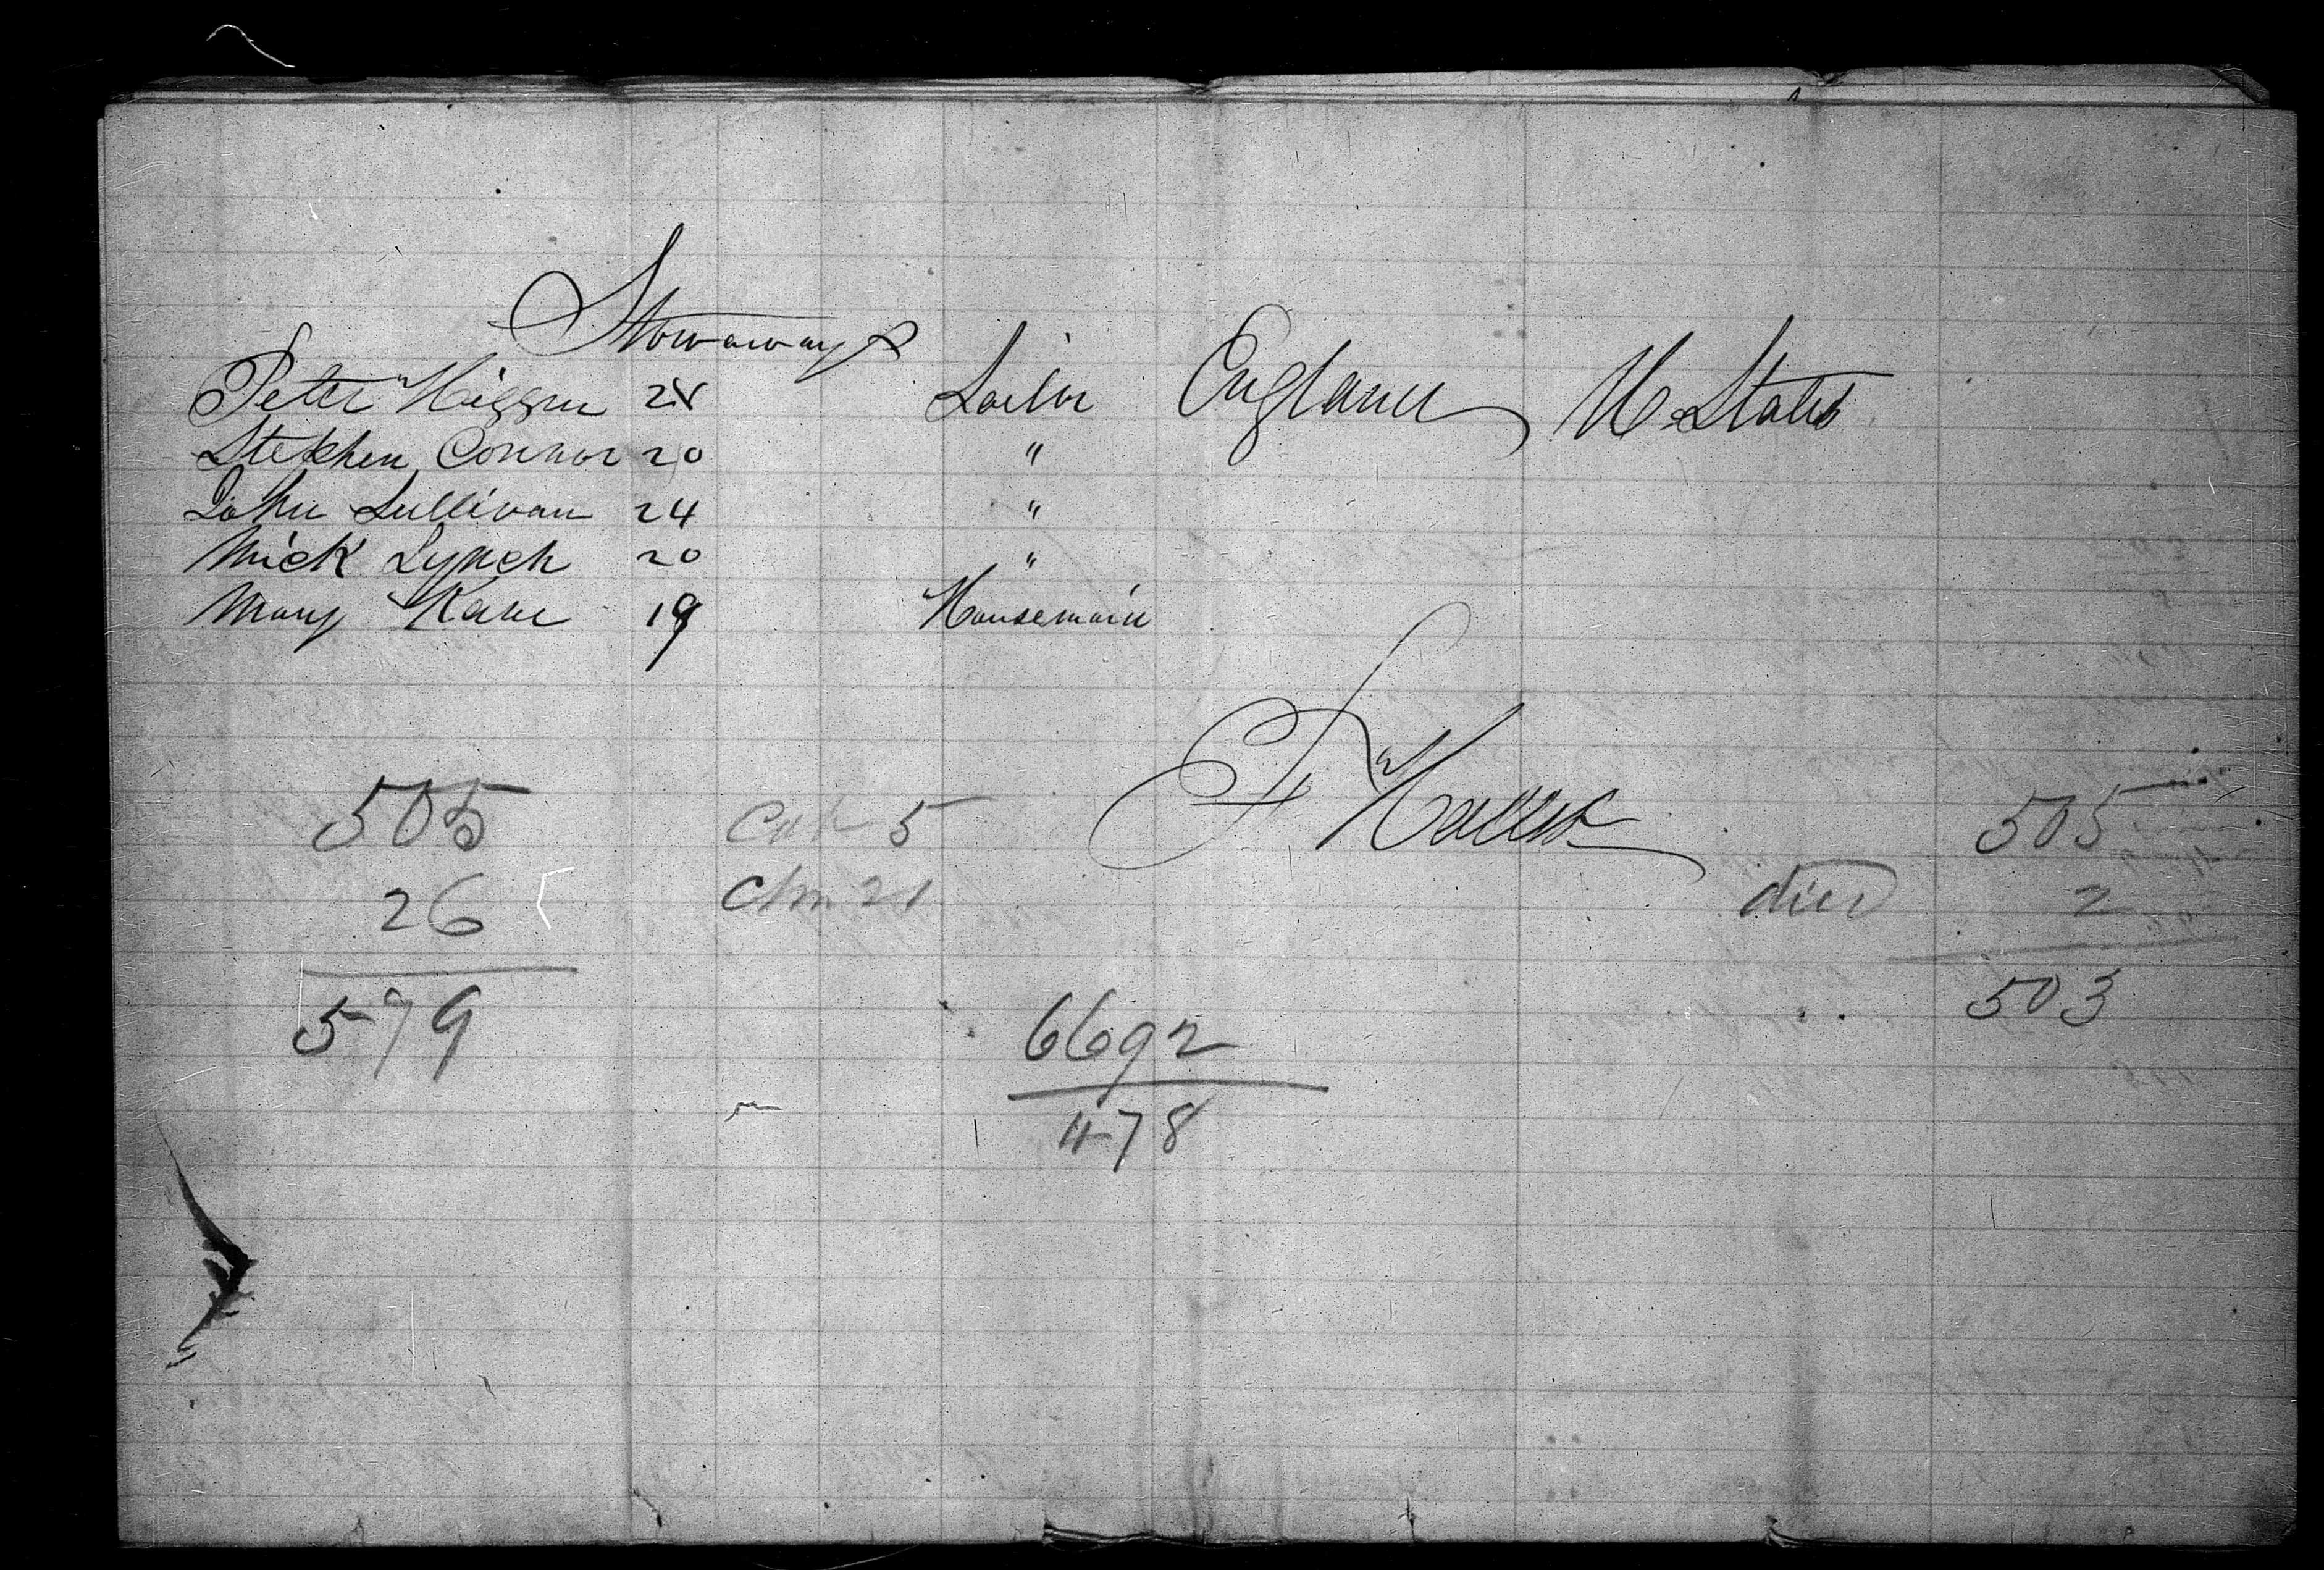 Stowaways
Peter Higgin 28 Sailor England U States
Stephen Connor 20 "
John Sullivan 24 "
Mick Lynch 20 "
Mary Kane 19 Housemaid
505 5 505
26 21 died 2
579 503
6692
478